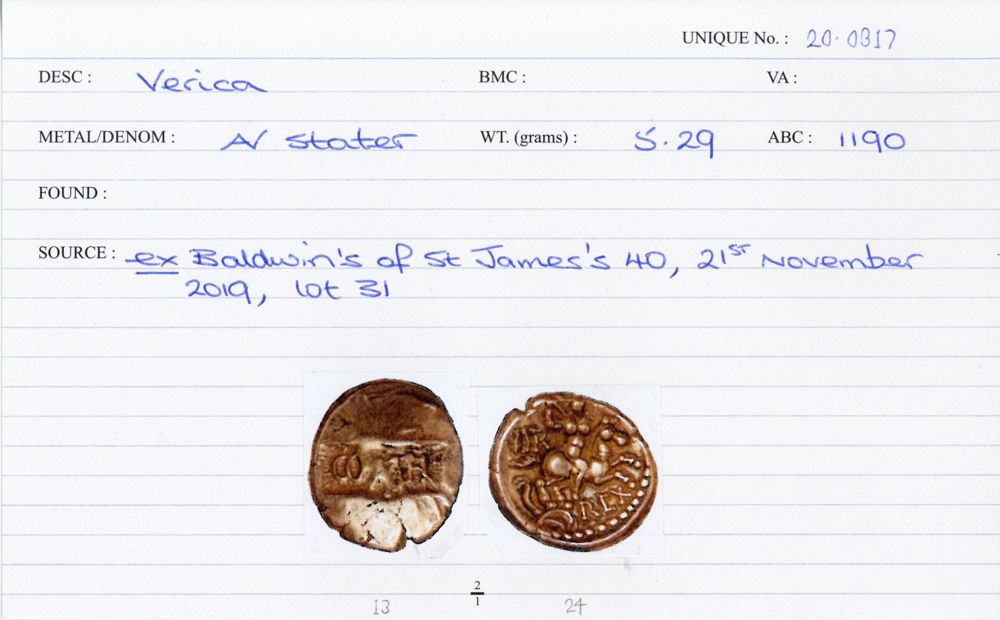 UNIQUE No. : 20·0317
DESC : Verica BMC : VA :
METAL/DENOM : AV Stater WT. (grams) : 5.29 ABC : 1190
FOUND :
SOURCE : ex Baldwin's of St James's 40, 21ST November
2019, lot 31
REX
2
1
13 24